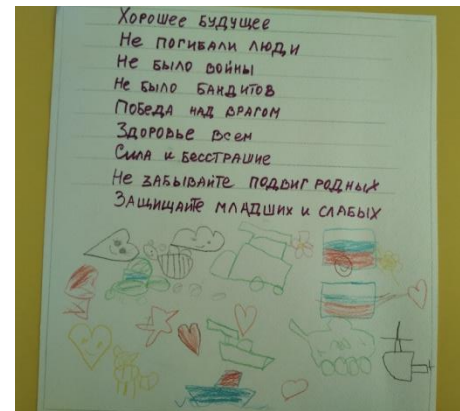 Хорошее будущее
Не погибали люди
Не было войны
Не было бандитов
Победа над врагом
Здоровье всем
Сила и бесстрашие
Не забывайте подвиг родных
Защищайте младших и слабых